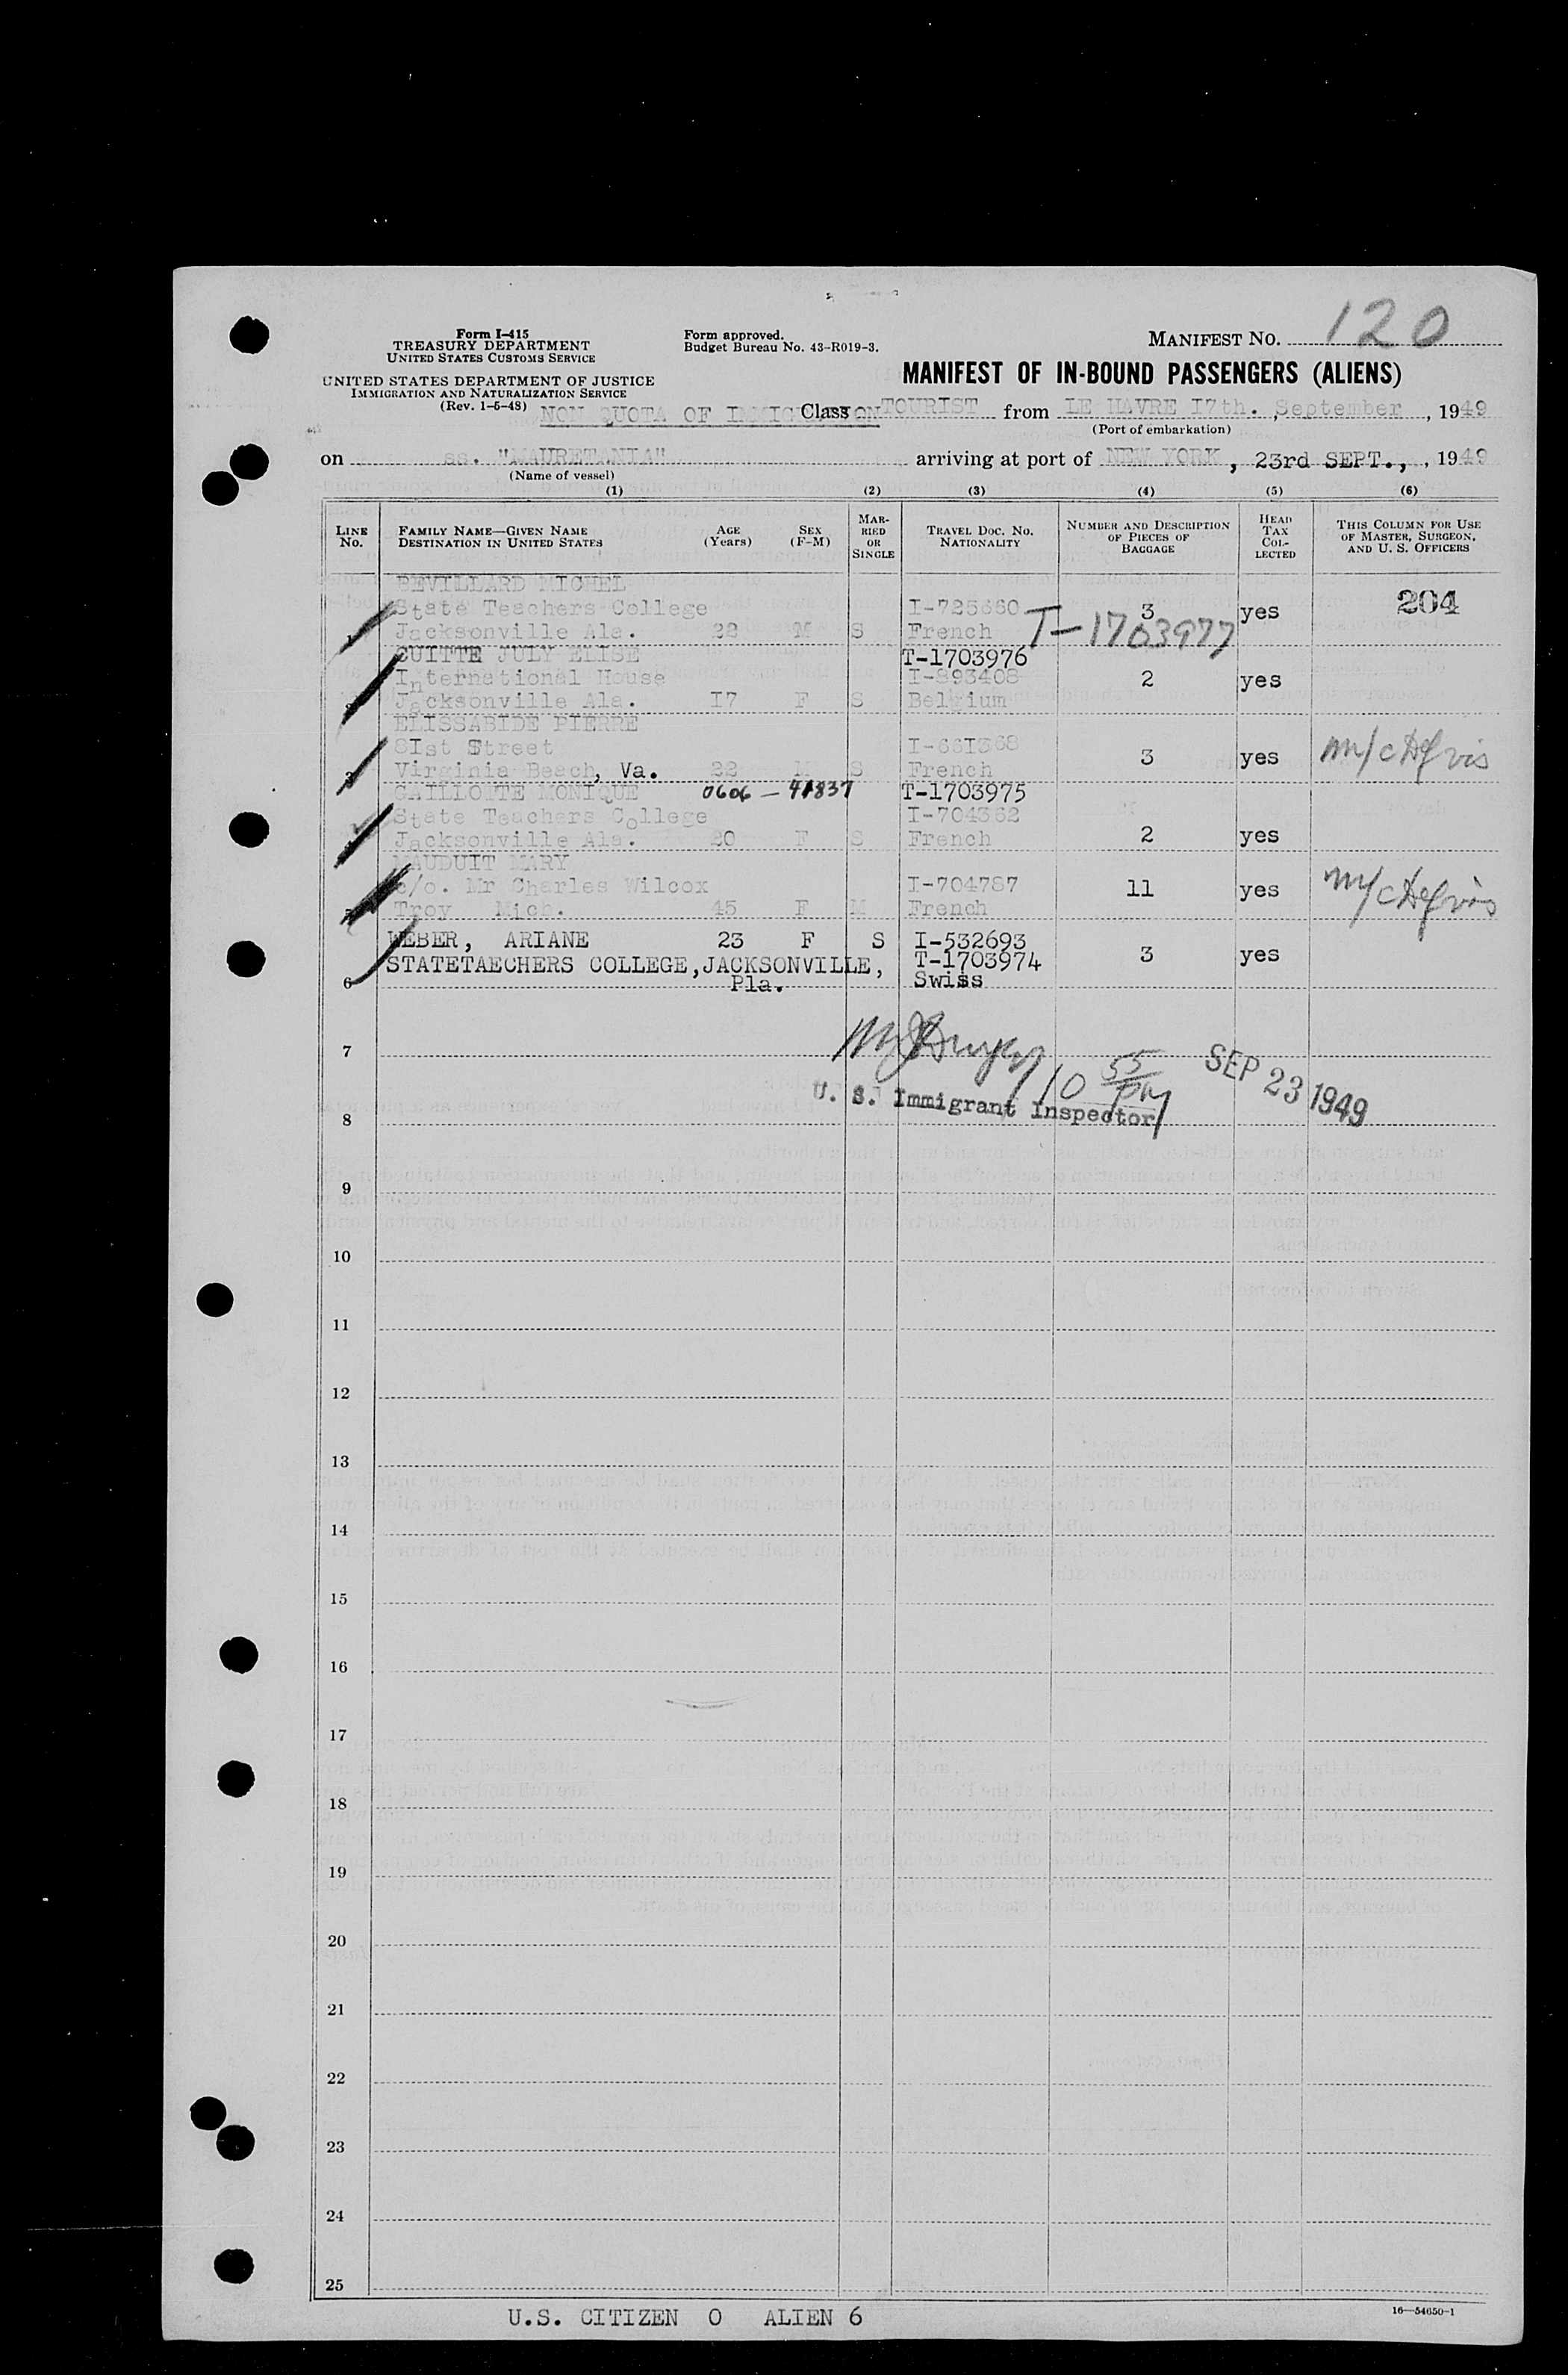 Form I-415
TREASURY DEPARTMENT
UNITED STATES CUSTOMS SERVICE
UNITED STATES DEPARTMENT OF JUSTICE
IMMIGRATION AND NATURALIZATION SERVICE
(Rev. 1-5-48)
Form approved.
Budget Bureau No. 43-R019-3.
MANIFEST NO. 120
MANIFEST OF IN-BOUND PASSENGERS (ALIENS)
NON QUOTA OF IMMIGRATION Class TOURIST from LE HAVRE I7th. , September , 1949
(Port of embarkation)
on ss. "MAURETANIA" arriving at port of NEW YORK , 23rd SEPT., , 1949
(Name of vessel)
(1) (2) (3) (4) (5) (6)
LINE NO. FAMILY NAME—GIVEN NAME DESTINATION IN UNITED STATES AGE (Years) SEX (F-M) MARRIED OR SINGLE TRAVEL DOC. NO. NATIONALITY NUMBER AND DESCRIPTION OF PIECES OF BAGGAGE HEAD TAX COLLECTED THIS COLUMN FOR USE OF MASTER, SURGEON, AND U. S. OFFICERS
REVILLARD MICHEL
State Teachers College I-725660 3 yes 204
1 Jacksonville Ala. 22 M S French T-1703977
CUITTE JULY ELISE T-1703976
International House I-893408 2 yes
2 Jacksonville Ala. I7 F S Belgium
ELISSABIDE PIERRE
8Ist Street I-661368
3 Virginia Beach, Va. 22 M S French 3 yes
CAILLOTTE MONIQUE 0606 — 41837 T-1703975
State Teachers College I-704362
4 Jacksonville Ala. 20 F S French 2 yes
MAUDUIT MARY
c/o. Mr Charles Wilcox I-704787
5 Troy Mich. 45 F M French 11 yes
WEBER, ARIANE 23 F S I-532693
STATETAECHERS COLLEGE,JACKSONVILLE, T-1703974 3 yes
6 Pla. Swiss
7
10 55/PM SEP 23 1949
U. S. Immigrant Inspector
8
9
10
11
12
13
14
15
16
17
18
19
20
21
22
23
24
25
U.S. CITIZEN 0 ALIEN 6
16—54650-1